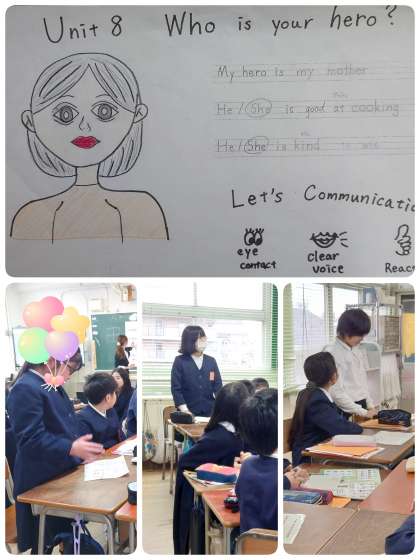 Unit 8 Who is your hero?
My hero is my mother
He / She is good at cooking
He / She is kind
Let's Communicatio
eye contact
clear voice
React